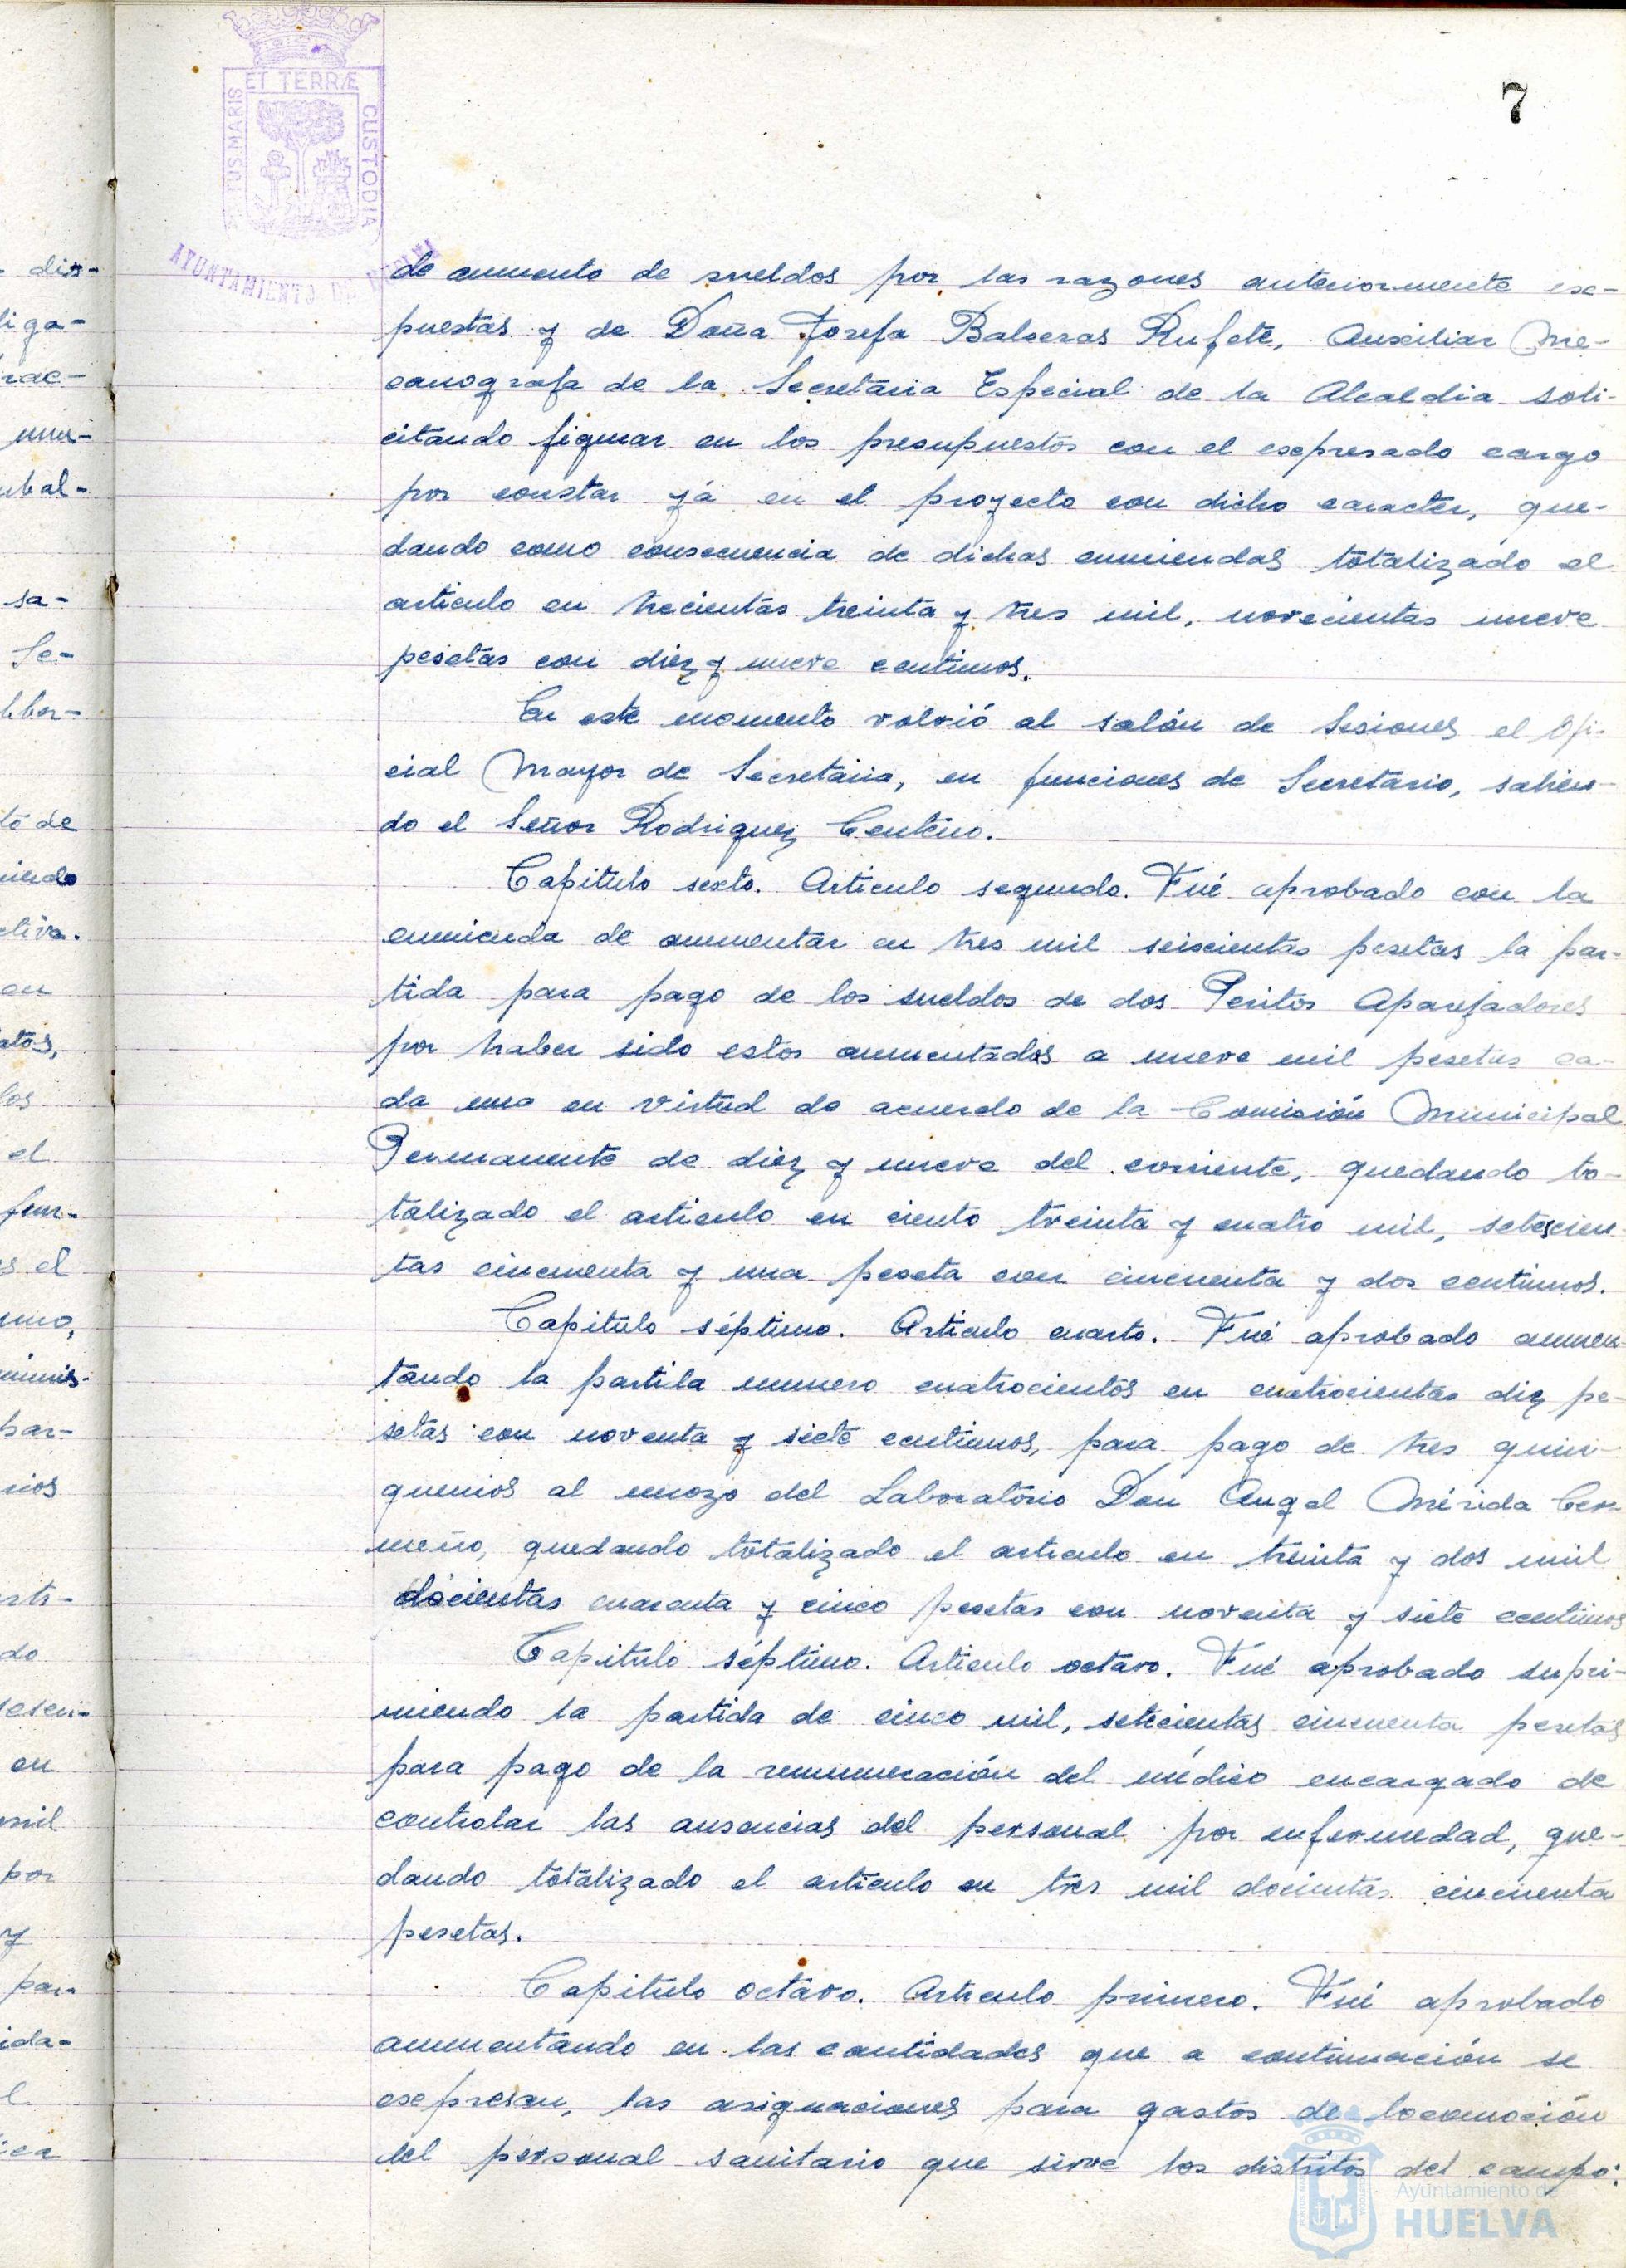 7
ET TERRÆ
TUS MARIS
CUSTODIA
AYUNTAMIENTO DE HUELVA
de aumento de sueldos por las razones anteriormente ex-
puestas y de Doña Josefa Balseras Rufete, Auxiliar Me-
canografa de la Secretaria Especial de la Alcaldia soli-
citando figurar en los presupuestos con el expresado cargo
por constar yá en el proyecto con dicho caracter, que-
dando como consecuencia de dichas enmiendas totalizado el
articulo en trecientas treinta y tres mil, novecientas nueve
pesetas con diez y nueve centimos.
En este momento volvió al salón de Sesiones el Ofi-
cial Mayor de Secretaria, en funciones de Secretario, salien-
do el Señor Rodriguez Centeno.
Capitulo sexto. Articulo segundo. Fué aprobado con la
enmienda de aumentar en tres mil seiscientas pesetas la par-
tida para pago de los sueldos de dos Peritos Aparejadores
por haber sido estos aumentados a nueve mil pesetas ca-
da uno en virtud de acuerdo de la Comisión Municipal
Permanente de diez y nueve del corriente, quedando to-
talizado el articulo en ciento treinta y cuatro mil, setecien-
tas cincuenta y una peseta con cincuenta y dos centimos.
Capitulo séptimo. Articulo cuarto. Fué aprobado aumen-
tando la partila numero cuatrocientos en cuatrocientas diez pe-
setas con noventa y siete centimos, para pago de tres quin-
quenios al mozo del Laboratorio Don Angel Mérida Cer-
meño, quedando totalizado el articulo en treinta y dos mil
docientas cuarenta y cinco pesetas con noventa y siete centimos
Capitulo séptimo. Articulo octavo. Fué aprobado supri-
miendo la partida de cinco mil, setecientas cincuenta pesetas
para pago de la remuneración del médico encargado de
controlar las ausencias del personal por enfermedad, que-
dando totalizado el articulo en tres mil docientas cincuenta
pesetas.
Capitulo octavo. Articulo primero. Fué aprobado
aumentando en las cantidades que a continuación se
expresan, las asignaciones para gastos de locomoción
del personal sanitario que sirve los distritos del campo:
Ayuntamiento de
HUELVA